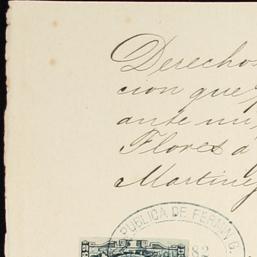 Derechos
cion que
ante mi
Flores á
Martinez
PUBLICA DE FERMIN G.
82